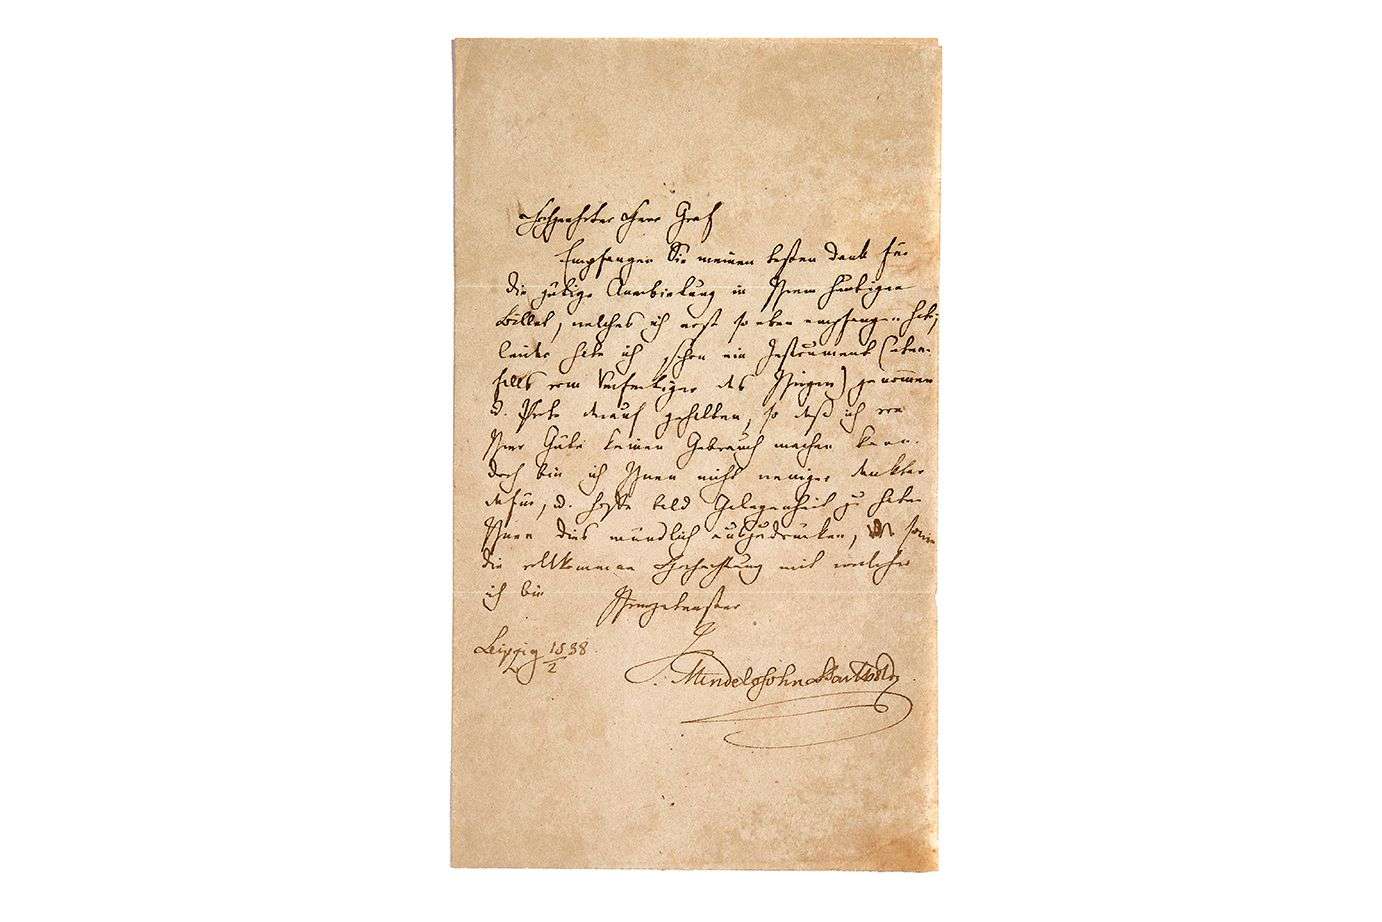 Hochgeehrter Herr Graf
Empfangen Sie meinen besten Dank für
die gütige Anerbietung in Ihrem heutigen
Billet, welches ich erst so eben empfangen habe;
leider habe ich schon ein Instrument (eben-
falls vom Verfertiger des Ihrigen) genommen
u. Probe darauf gehalten, so daß ich von
Ihrer Güte keinen Gebrauch machen kann.
Doch bin ich Ihnen nicht weniger dankbar
dafür, u. hoffe bald Gelegenheit zu haben
Ihnen dies mündlich auszudrücken, sowie
die vollkommene Hochachtung mit welcher
ich bin Ihr ergebenster
Leipzig 18/2 38.
F. Mendelssohn Bartholdy